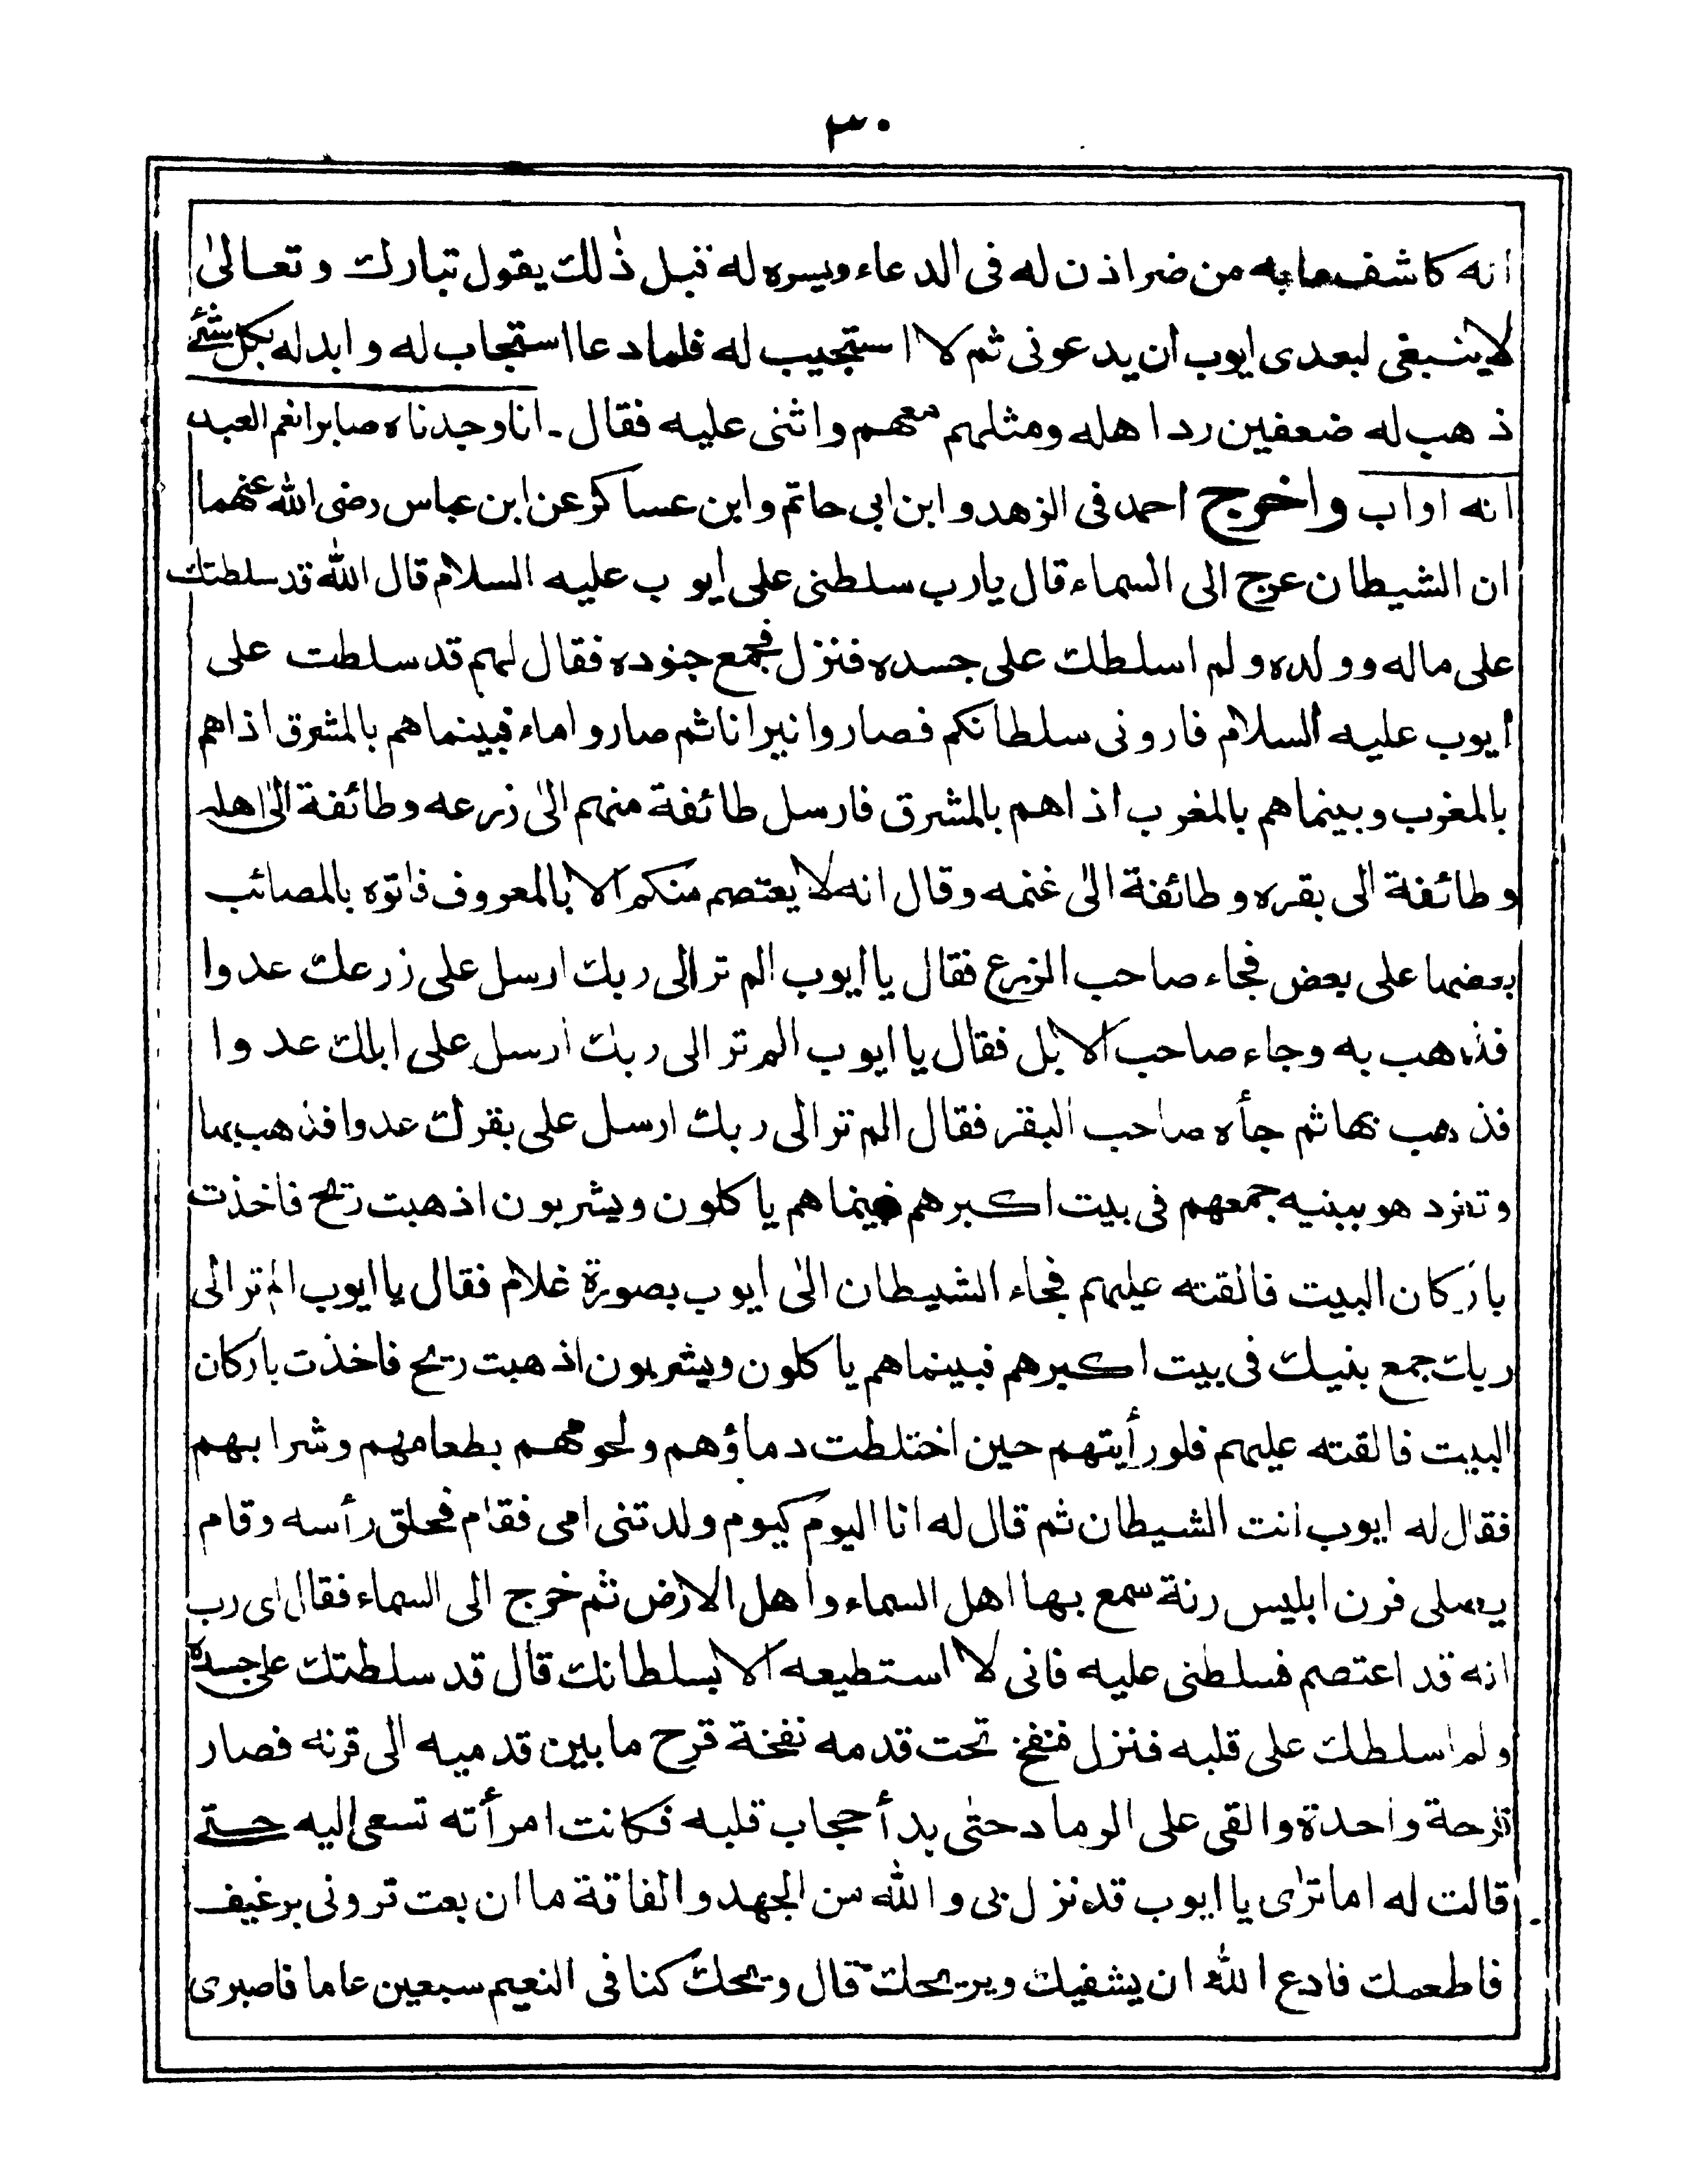 ٣٠
انه كاشف مابه من ضر اذن له فى الدعاء ويسره له قبل ذٰلك يقول تبارك وتعالىٰ
لاينبغى لبعدى ايوب ان يدعونى ثم لا استجيب له فلما دعا استجاب له وابدله بكل شئ
ذهب له ضعفين رد اهله ومثلهم معهم واثنى عليه فقال ـ انا وجدناه صابرا نعم العبد
انه اواب واخرج احمد فى الزهد وابن ابى حاتم وابن عساكر عن ابن عباس رضى الله عنهما
ان الشيطان عرج الى السماء قال يارب سلطنى على ايوب عليه السلام قال الله قد سلطتك
على ماله وولده ولم اسلطك على جسده فنزل فجمع جنوده فقال لهم قد سلطت على
ايوب عليه السلام فارونى سلطانكم فصاروا نيرانا ثم صاروا ماء فبينماهم بالمشرق اذاهم
بالمغرب وبينماهم بالمغرب اذاهم بالمشرق فارسل طائفة منهم الىٰ زرعه وطائفة الىٰ اهله
وطائفة الى بقره وطائفة الىٰ غنمه وقال انه لا يعتصم منكم الا بالمعروف فاتوه بالمصائب
بعضها على بعض فجاء صاحب الزرع فقال يا ايوب الم تر الى ربك ارسل على زرعك عدوا
فذهب به وجاء صاحب الابل فقال يا ايوب الم تر الى ربك ارسل على ابلك عدوا
فذهب بها ثم جأه صاحب البقر فقال الم تر الى ربك ارسل على بقرك عدوا فذهب بها
وتفرد هو ببنيه جمعهم فى بيت اكبرهم فبينماهم ياكلون ويشربون اذهبت ريح فاخذت
باركان البيت فالقته عليهم فجاء الشيطان الىٰ ايوب بصورة غلام فقال يا ايوب الم تر الى
ربك جمع بنيك فى بيت اكبرهم فبينماهم ياكلون ويشربون اذهبت ريح فاخذت باركان
البيت فالقته عليهم فلو رأيتهم حين اختلطت دماؤهم ولحومهم بطعامهم وشرابهم
فقال له ايوب انت الشيطان ثم قال له انا اليوم كيوم ولدتنى امى فقام فحلق رأسه وقام
يصلى فرن ابليس رنة سمع بها اهل السماء واهل الارض ثم خرج الى السماء فقال اى رب
انه قد اعتصم فسلطنى عليه فانى لا استطيعه الا بسلطانك قال قد سلطتك على جسده
ولم اسلطك على قلبه فنزل فنفخ تحت قدمه نفخة قرح مابين قدميه الى قرنه فصار
قرحة واحدة والقى على الرماد حتٰى بدأ حجاب قلبه فكانت امرأته تسعى اليه حتى
قالت له اما ترٰى يا ايوب قد نزل بى والله من الجهد والفاقة ما ان بعت قرونى برغيف
فاطعمك فادع الله ان يشفيك ويريحك قال ويحك كنا فى النعيم سبعين عاما فاصبرى